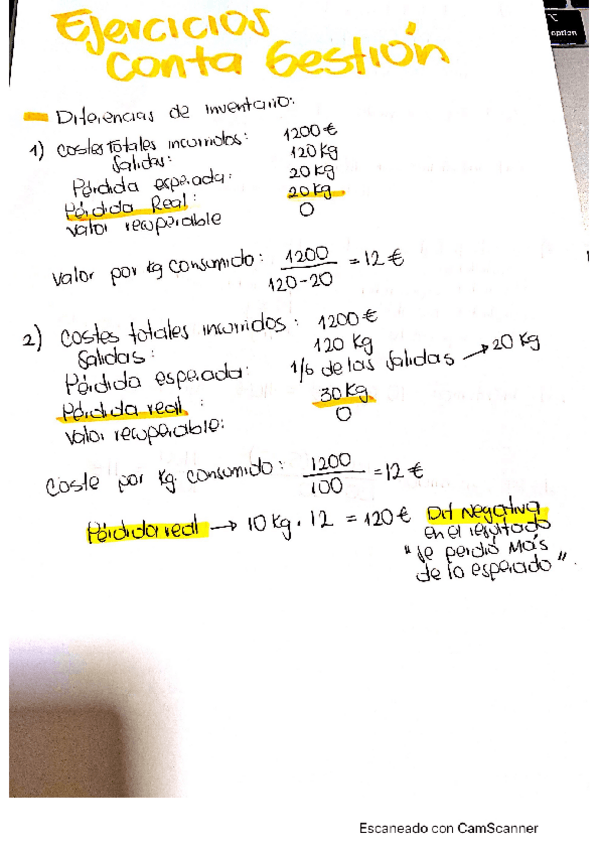 Ejercicios
Conta Gestión
Diferencias de inventario:
1) Costes Totales incurridos: 1200 €
Salidas: 120 Kg
Pérdida esperada: 20 Kg
Pérdida Real: 20 Kg.
Valor recuperable 0
Valor por kg consumido: 1200 / 120-20 = 12 €
2) Costes totales incurridos: 1200 €
Salidas: 120 Kg
Pérdida esperada: 1/6 de las salidas → 20 Kg
Pérdida real: 30 Kg.
Valor recuperable: 0
Coste por Kg. consumido: 1200 / 100 = 12 €
Pérdida real → 10 Kg . 12 = 120 € Dif Negativa
en el resultado
"se perdió más
de lo esperado".
option
Escaneado con CamScanner